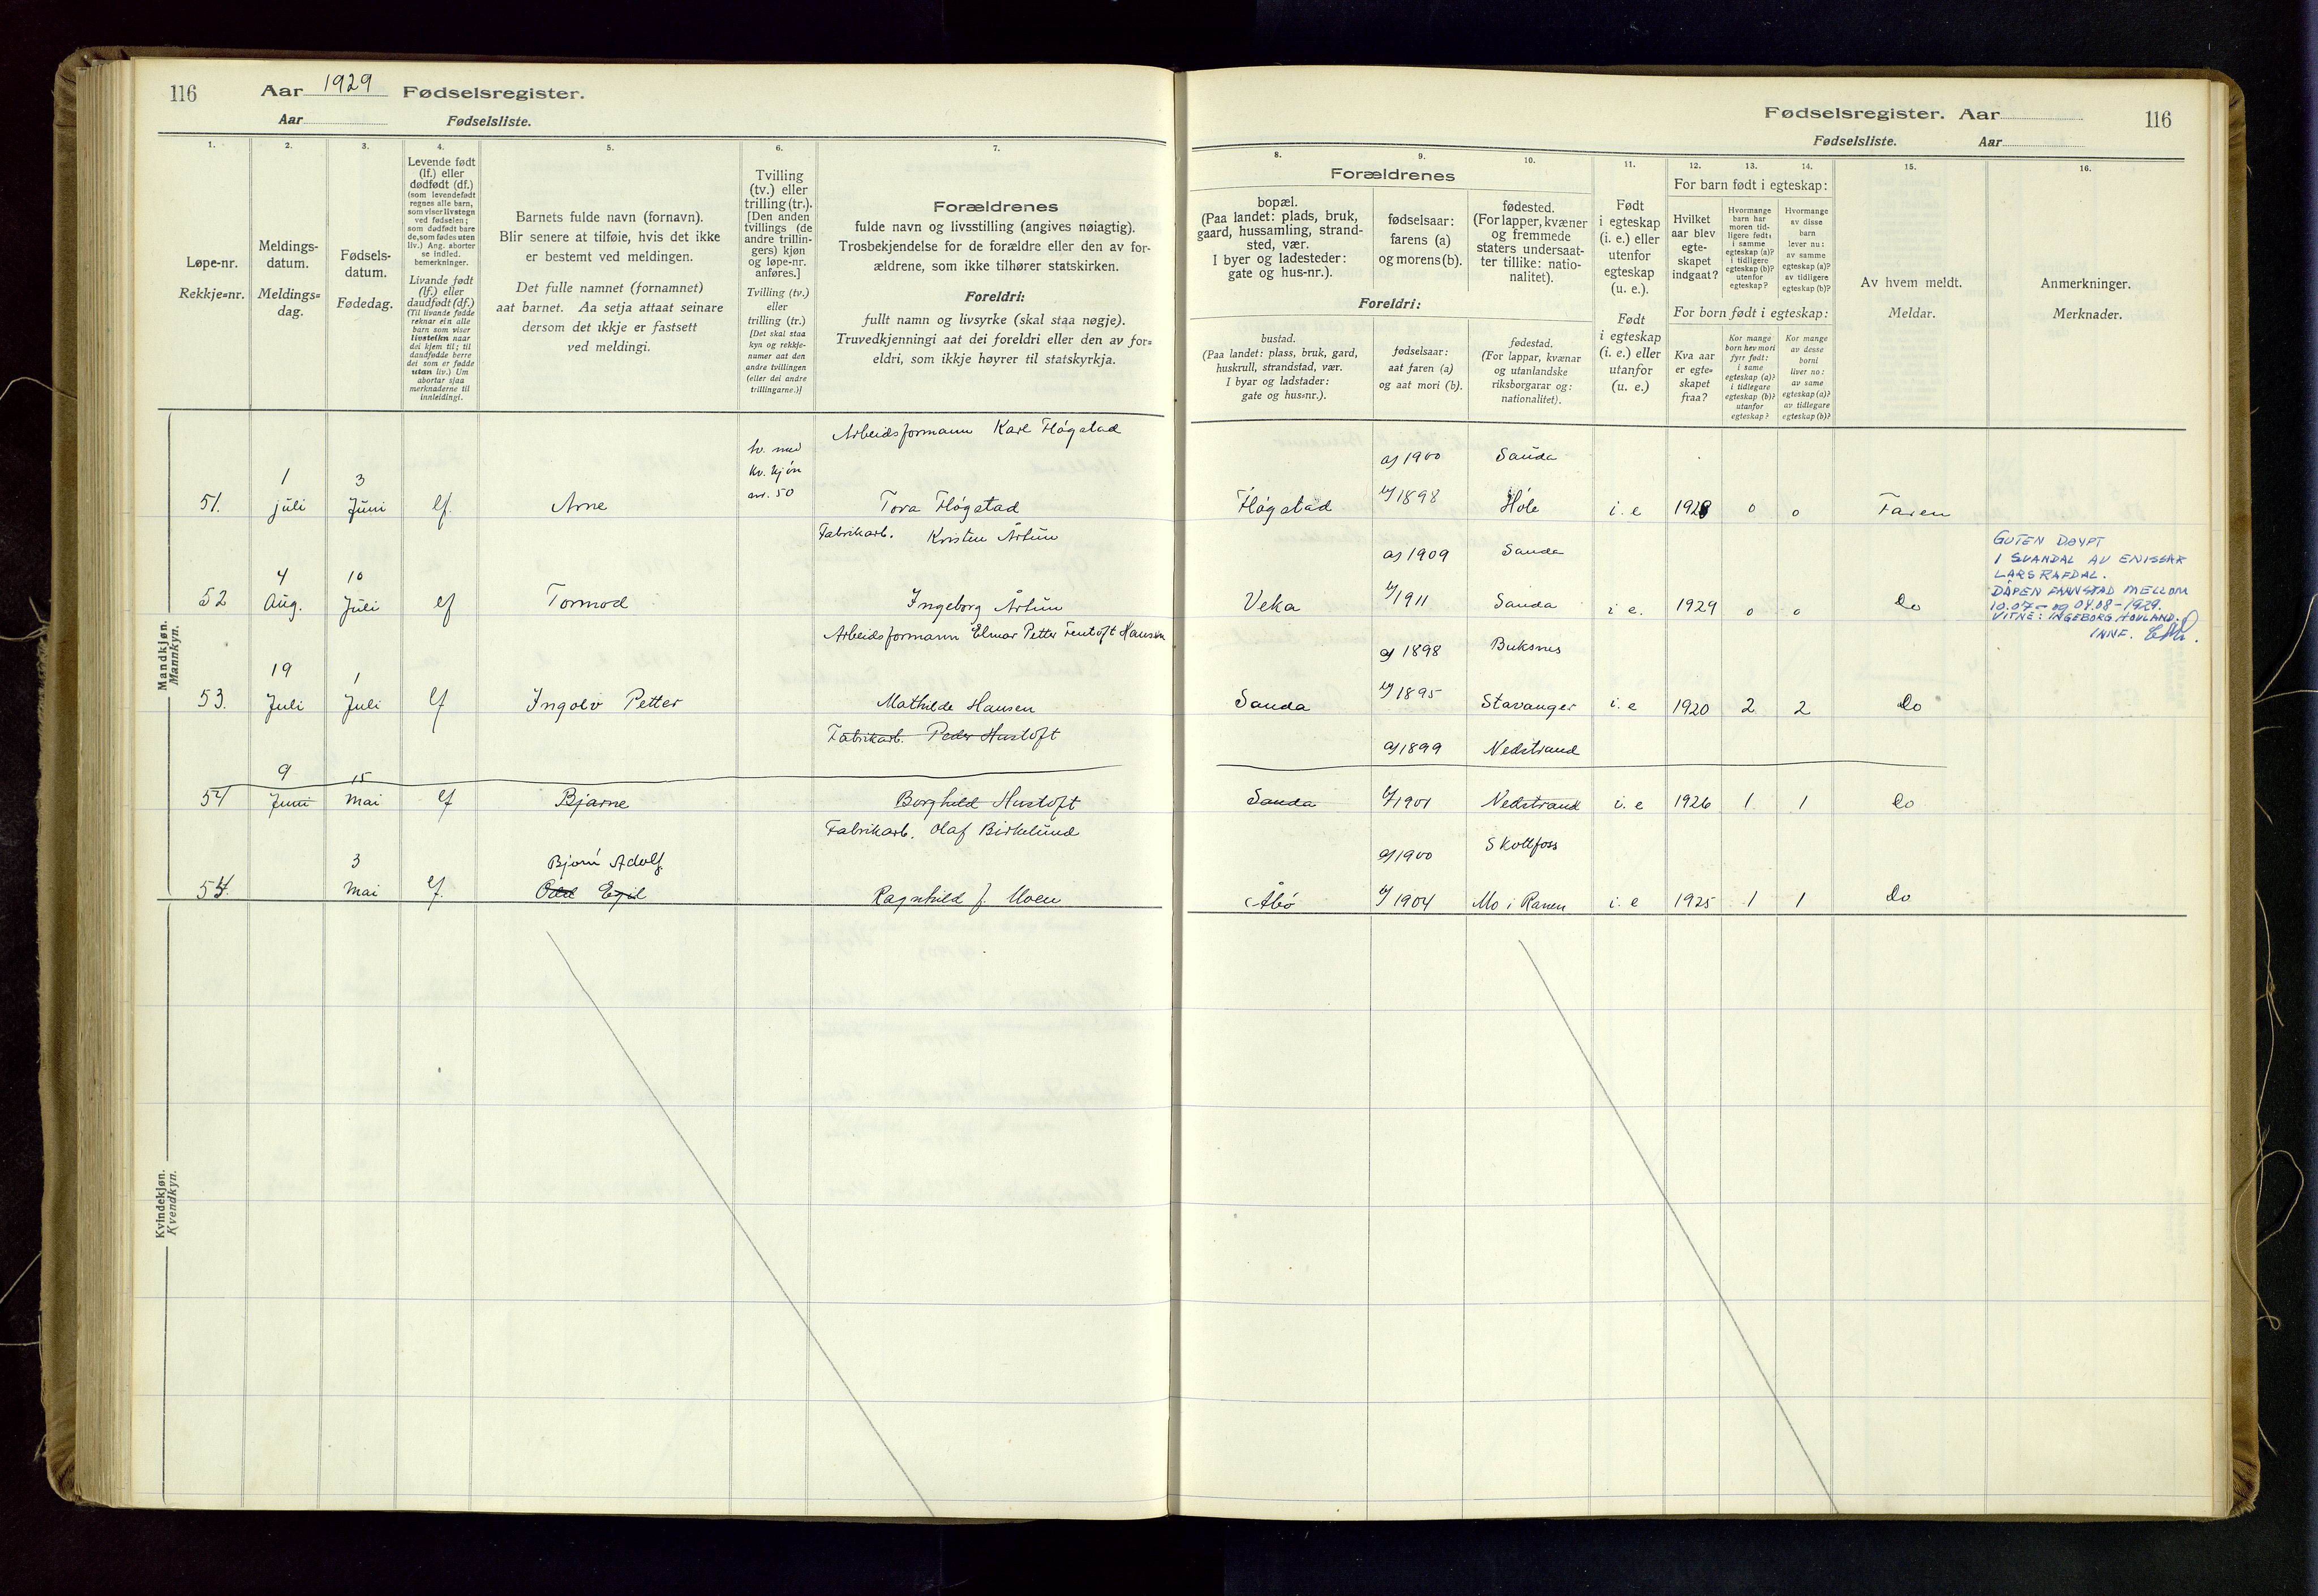 116 Aar 1929 Fødselsregister.
Aar Fødselsliste.
Fødselsregister. Aar 116
Fødselsliste. Aar
1.
Løpe-nr.
Rekkje=nr.
2.
Meldings-
datum.
Meldings=
dag.
3.
Fødsels-
datum.
Fødedag.
4.
Levende født
(lf.) eller
dødfødt (df.)
(som levendefødt
regnes alle barn,
som viser livstegn
ved fødselen;
som dødfødt bare
de, som fødes uten
liv.) Ang. aborter
se indled.
bemerkninger.
Livande født
(lf.) eller
daudfødt (df.)
(Til livande fødde
reknar ein alle
barn som viser
livsteikn naar
dei kjem til; til
daudfødde berre
dei som er fødde
utan liv.) Um
abortar sjaa
merknaderne til
innleidingi.
5.
Barnets fulde navn (fornavn).
Blir senere at tilføie, hvis det ikke
er bestemt ved meldingen.
Det fulle namnet (fornamnet)
aat barnet. Aa setja attaat seinare
dersom det ikkje er fastsett
ved meldingi.
6.
Tvilling
(tv.) eller
trilling (tr.).
[Den anden
tvillings (de
andre trillin-
gers) kjøn
og løpe-nr.
anføres.]
Tvilling (tv.)
eller
trilling (tr.)
[Det skal staa
kyn og rekkje-
numer aat den
andre tvillingen
(eller dei andre
trillingarne.)]
7.
Forældrenes
fulde navn og livsstilling (angives nøiagtig).
Trosbekjendelse for de forældre eller den av for-
ældrene, som ikke tilhører statskirken.
Foreldri:
fullt namn og livsyrke (skal staa nøgje).
Truvedkjenningi aat dei foreldri eller den av for=
eldri, som ikkje høyrer til statskyrkja.
Forældrenes
8.
bopæl.
(Paa landet: plads, bruk,
gaard, hussamling, strand-
sted, vær.
I byer og ladesteder:
gate og hus-nr.).
Foreldri:
bustad.
(Paa landet: plass, bruk, gard,
huskrull, strandstad, vær.
I byar og ladstader:
gate og hus=nr.).
9.
fødselsaar:
farens (a)
og morens (b).
fødselsaar:
aat faren (a)
og aat mori (b).
10.
fødested.
(For lapper, kvæner
og fremmede
staters undersaat-
ter tillike: natio-
nalitet).
fødestad.
(For lappar, kvænar
og utanlandske
riksborgarar og:
nationalitet).
11.
Født
i egteskap
(i. e.) eller
utenfor
egteskap
(u. e.).
Født
i egteskap
(i. e.) eller
utanfor
(u. e.).
For barn født i egteskap:
12.
Hvilket
aar blev
egte-
skapet
indgaat?
For born født i egteskap:
Kva aar
er egte=
skapet
fraa?
13.
Hvormange
barn har
moren tid-
ligere født:
i samme
egteskap (a)?
i tidligere
egteskap (b)?
utenfor
egteskap?
Kor mange
born hev mori
fyrr født:
i same
egteskap (a)?
i tidlegare
egteskap (b)?
utanfor
egteskap?
14.
Hvormange
av disse
barn
lever nu:
av samme
egteskap (a)?
av tidligere
egteskap (b)?
Kor mange
av desse
borni
liver no:
av same
egteskap (a)?
av tidlegare
egteskap (b)?
15.
Av hvem meldt.
Meldar.
16.
Anmerkninger.
Merknader.
Mandkjøn.
Mannkyn.
Arbeidsformann Karl Fløgstad
51. 1 juli 3 Juni lf. Arne tv. med kv. kjøn nr. 50 Tora Fløgstad
Fløgstad a) 1900 b) 1898 Sauda Høle i. e 1928 0 0 Faren
Fabrikarb. Kristen Årtun
52 4 Aug. 10 Juli lf Tormod Ingeborg Årtun
Veka a) 1909 b) 1911 Sauda Sauda i e. 1929 0 0 Do
GUTEN DØYPT
I SVANDAL AV EMISSÆR
LARS RAFDAL.
DÅPEN FANN STAD MELLOM
10.07– og 04.08–1929.
VITNE: INGEBORG HOVLAND.
INNF.
Arbeidsformann Elmar Petter Tentoft Hansen
53. 19 Juli 1 Juli lf Ingolv Petter Mathilde Hansen
Sauda a) 1898 b) 1895 Buksnes Stavanger i. e 1920 2 2 Do
Fabrikarb. Peder Hustoft
54 9 Juni 15 Mai lf Bjarne Borghild Hustoft
Sauda a) 1899 b) 1901 Nedstrand Nedstrand i. e 1926 1 1 Do
Fabrikarb. Olaf Birkelund
54. 3 Mai lf. Bjørn Adolf Odd Egil Ragnhild f. Moen
Åbø a) 1900 b) 1904 Skotfoss Mo i Ranen i. e 1925 1 1 Do
Kvindekjøn.
Kvendkyn.